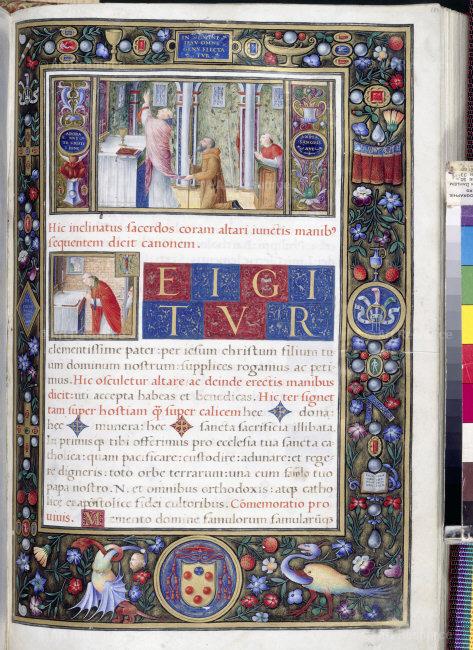 IN NOMINE
IESV OMNE
GENV FLECTA
TVR
ADORA
MVS
TE CHRISTE
Hic inclinatus sacerdos coram altari iunctis manibꝰ
sequentem dicit canonem.
E I G I
T V R
clementissime pater: per iesum christum filium tu
um dominum nostrum: supplices rogamus ac peti
mus. Hic osculetur altare: ac deinde erectis manibus
dicit: uti accepta habeas et benedicas. Hic ter signet
tam super hostiam q̃ super calicem: hec dona:
hec munera: hec sancta sacrificia illibata.
In primis q tibi offerimus pro ecclesia tua sancta ca
tholica: quam pacificare: custodire: adunare: et rege
re digneris: toto orbe terrarum: una cum famulo tuo
papa nostro .N. et omnibus orthodoxis: atq catho
lice et apostolice fidei cultoribus. Cõmemoratio pro
uiuis. Memento domine famulorum famularuq